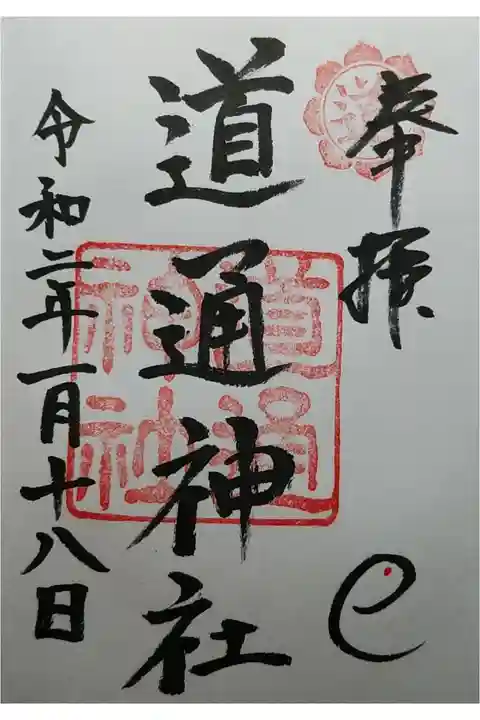 奉拝
道通神社
道通神社
令和二年一月十八日